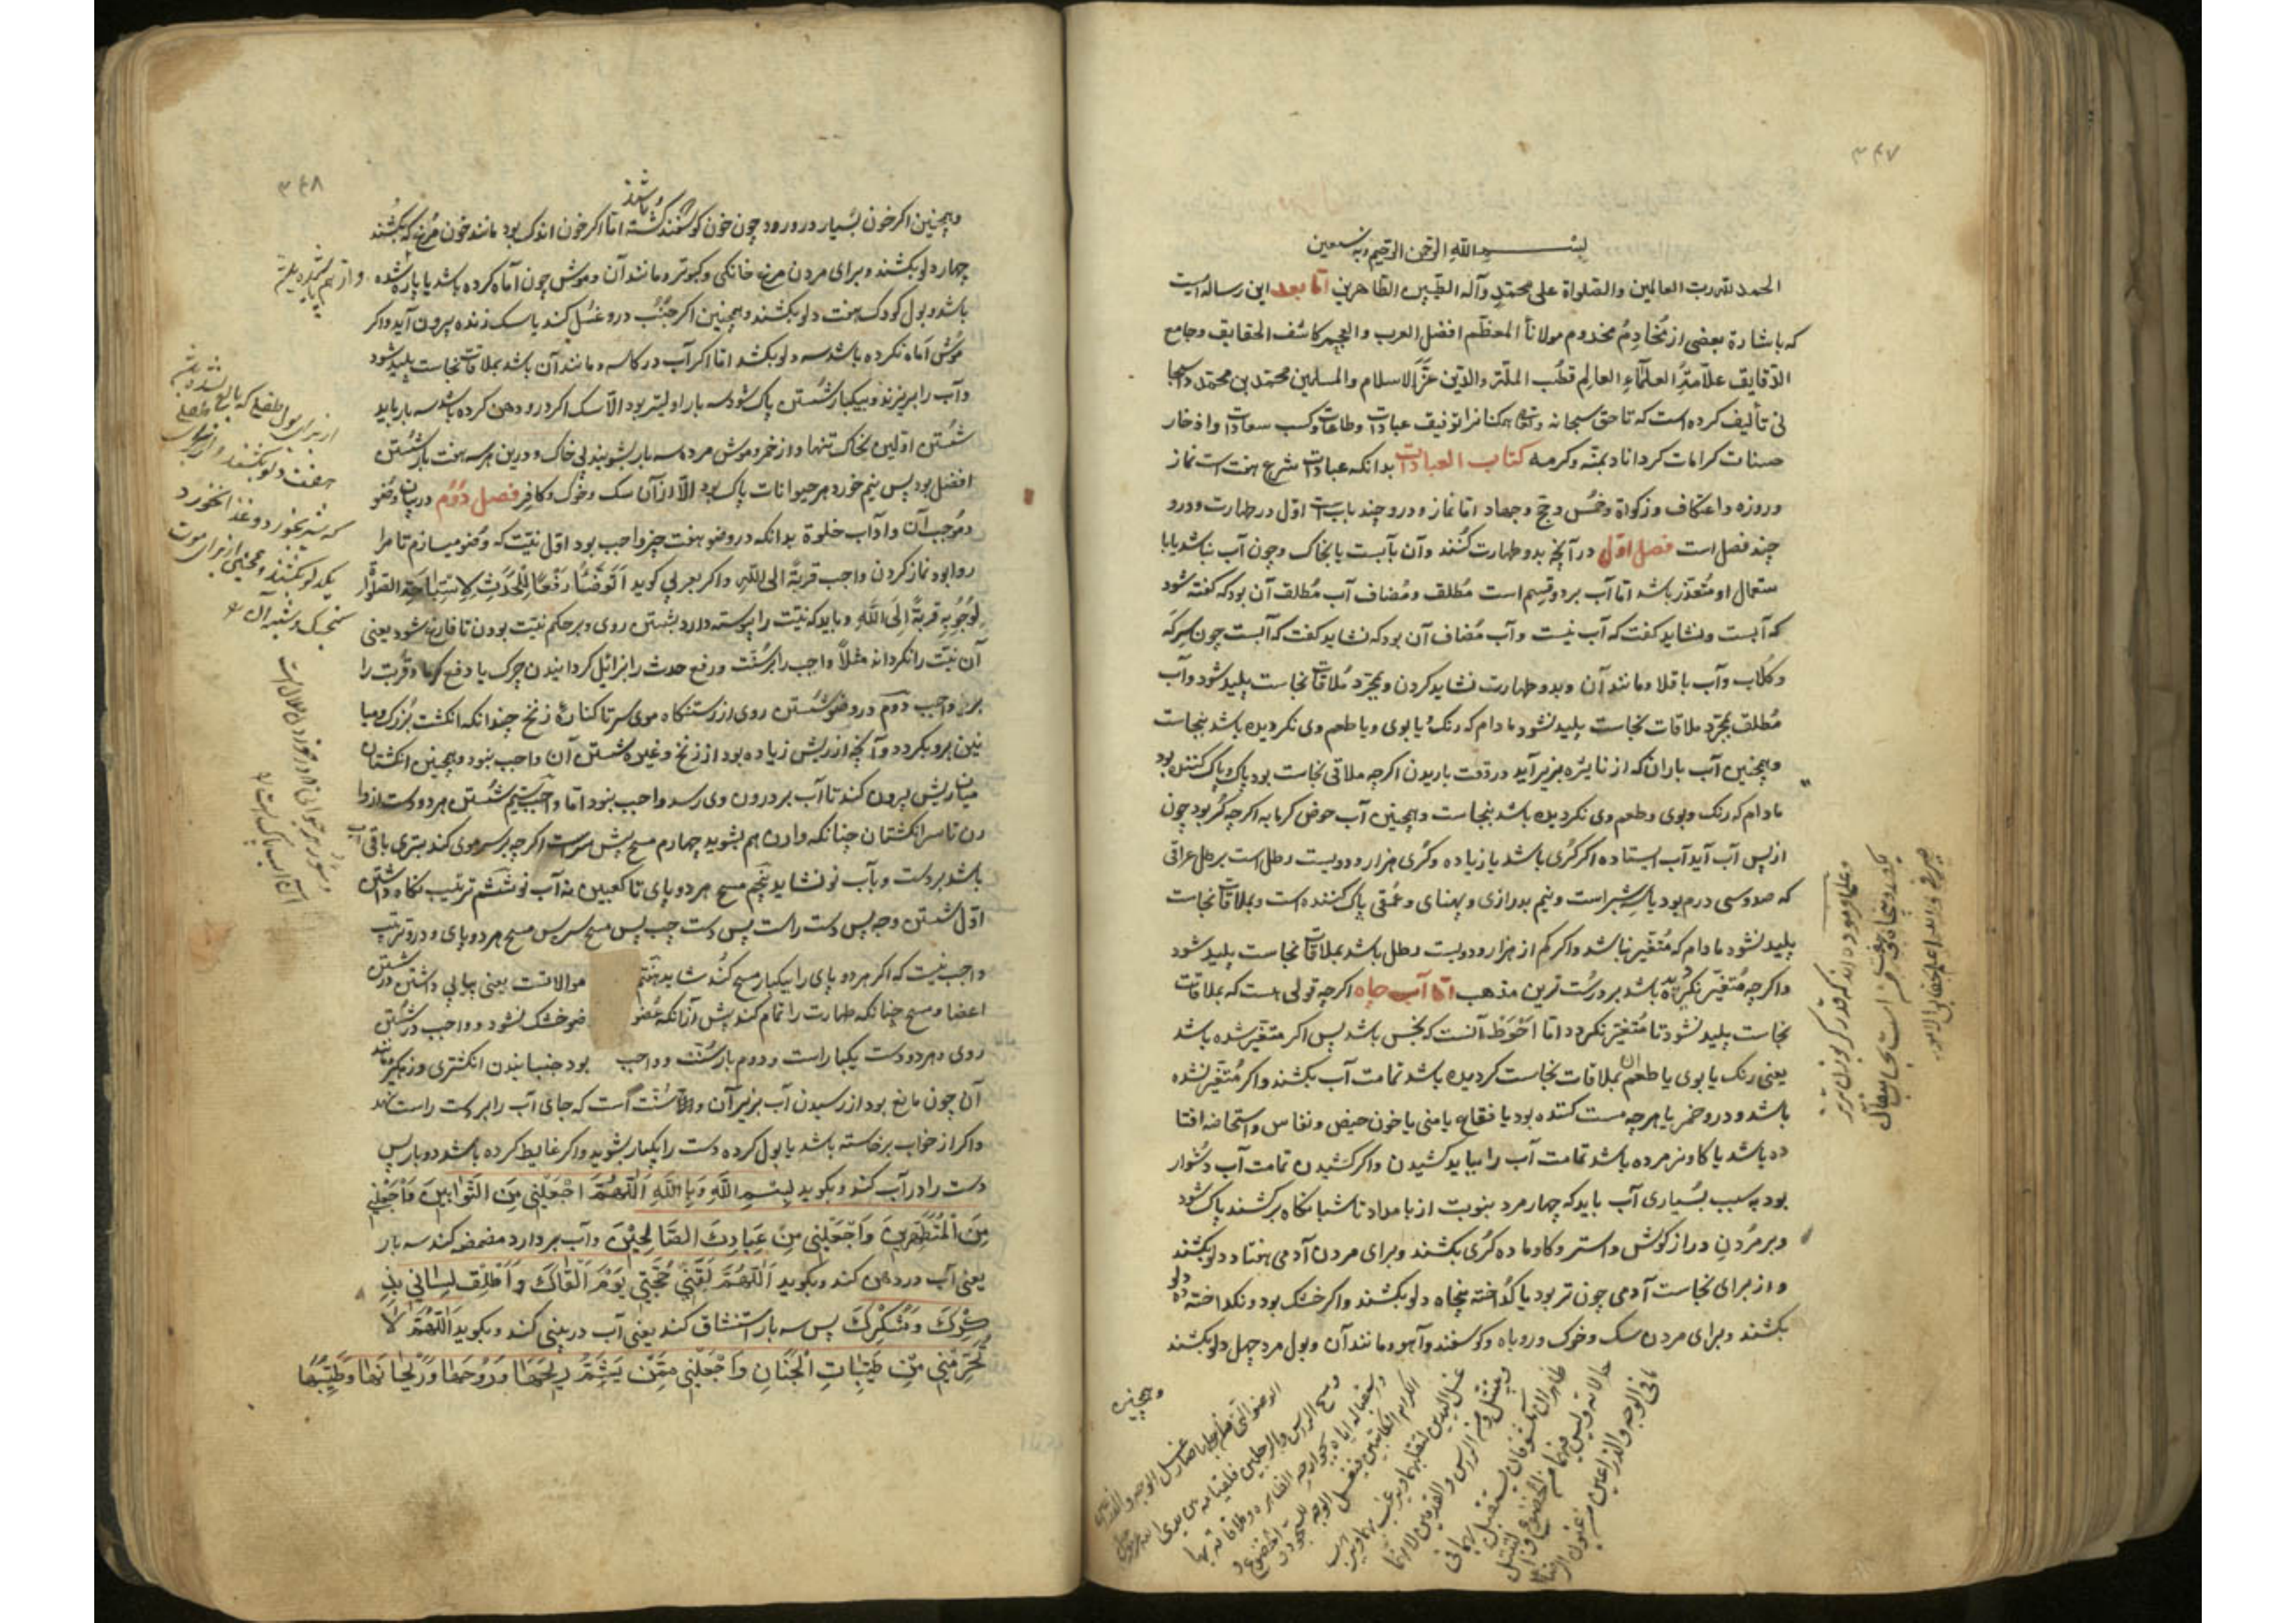 ۳۴۷
بسم الله الرحمن الرحيم وبه نستعين
الحمد لله رب العالمين والصلواة على محمد وآله الطيبين الطاهرين اما بعد اين رساله ايست
كه باشارة بعضى از مخاديم مخدوم مولانا المعظم افضل العرب والعجم كاشف الحقايق وجامع
الدقايق علامة العلماء العالم قطب الملة والدين عز الاسلام والمسلمين محمد بن محمد
تأليف كرده است كه تا حق سبحانه همكنانرا توفيق عبادات وطاعات وكسب سعادات واذخار
حسنات كرامات كرداناد بمنه وكرمه كتاب العبادات بدانكه عبادات شرع هفت است نماز
وروزه واعتكاف وزكواة وخمس وحج وجهاد اما نماز ودرو چند بابست اول در طهارت ودرو
چند فصل است فصل اول در آنچه بدو طهارت كنند وآن بآبست يا بخاك وچون آب نباشد يا با
ستعمال او متعذر باشد اما آب بر دو قسم است مطلق ومضاف آب مطلق آن بود كه كفته شود
كه آبست ونشايد كفت كه آب نيست وآب مضاف آن بود كه نشايد كفت كه آبست چون سركه
وكلاب وآب باقلا ومانند آن وبدو طهارت نشايد كردن وبمجرد ملاقات نجاست پليد شود وآب
مطلق بمجرد ملاقات نجاست پليد نشود مادام كه رنك يا بوى ويا طعم وى نكرديده باشد بنجاست
وهمچنين آب باران كه از نايژه بزير آيد در وقت باريدن اكرچه ملاقى نجاست بود پاك وپاك كننده بود
مادام كه رنك وبوى وطعم وى نكرديده باشد بنجاست وهمچنين آب حوض كرمابه اكرچه كم بود چون
از پس آب آيد آب ايستاده اكر كرى باشد يا زياده وكرى هزار ودويست رطل است برطل عراقى
كه صد وسى درم بود يا سه شبر است ونيم بدرازى وپهناى وعمقى پاك كننده است وبملاقات نجاست
پليد نشود مادام كه متغير نباشد واكر كم از هزار ودويست رطل باشد بملاقات نجاست پليد شود
واكرچه متغير نكرديده باشد بر درست ترين مذهب اما آب چاه اكرچه قولى هست كه بملاقات
نجاست پليد نشود تا متغير نكردد اما احوط آنست كه نجس باشد پس اكر متغير شده باشد
يعنى رنك يا بوى يا طعم آن بملاقات نجاست كرديده باشد تمامت آب بكشند واكر متغير نشده
باشد ودرو خمر يا هرچه مست كننده بود يا فقاع يا منى يا خون حيض ونفاس واستحاضه افتا
ده باشد يا كاو نر مرده باشد تمامت آب را ببايد كشيدن واكر كشيدن تمامت آب دشوار
بود بسبب بسيارى آب بايد كه چهار مرد بنوبت از بامداد تا شبانكاه بركشند پاك شود
وبر مردن دراز كوش واستر وكاو ماده كرى بكشند وبراى مردن آدمى هفتاد دلو بكشند
واز براى نجاست آدمى چون تر بود يا كداخته پنجاه دلو بكشند واكر خشك بود ونكداخته ده دلو
بكشند وبراى مردن سك وخوك وروباه وكوسفند وآهو ومانند آن وبول مرد چهل دلو بكشند
وهمچنين
۳۴۸
وهمچنين اكر خون بسيار درو رود چون خون كوسفند كشته باشند اما اكر خون اندك بود مانند خون مرغ كه بكشند
چهار دلو بكشند وبراى مردن مرغ خانكى وكبوتر ومانند آن وموش چون آماه كرده باشد يا پاره شده
باشد وبول كودك هفت دلو بكشند وهمچنين اكر جنب درو غسل كند يا سك زنده بيرون آيد واكر
موش آماه نكرده باشد سه دلو بكشد اما اكر آب در كاسه ومانند آن باشد بملاقات نجاست پليد شود
وآب را بريزند وبيكبار شستن پاك شود سه بار اوليتر بود الا سك اكر درو دهن كرده باشد سه بار بايد
شستن اولين بخاك تنها واز خمر وموش مرده سه بار بشويند بى خاك ودرين هر سه هفت بار شستن
افضل بود پس نيم خورد هر حيوانات پاك بود الا ازآن سك وخوك وكافر فصل دوم در بيان وضو
وموجب آن وآداب خلوة بدانكه در وضو هفت چيز واجب بود اول نيت كه وضو ميسازم تا مرا
روا بود نماز كردن واجب قربة الى الله واكر بعربى كويد اتوضأ رفعا للحدث لاستباحة الصلوة
لوجوبه قربة الى الله وبايد كه نيت را پيوسته دارد بشستن روى وبر حكم نيت بودن تا فارغ شود يعنى
آن نيت را نكرداند مثلا واجب را بر سنت ورفع حدث را بزايل كردانيدن چرك يا دفع كرما وقربت را
بريا واجب دوم در وضو شستن روى از رستنكاه موى سر تا كناره زنخ چندانكه انكشت بزرك وميا
نين برو بكردد وآنچه از ريش زياده بود از زنخ وغيره شستن آن واجب نبود وهمچنين انكشتان
ميان ريش بيرون كند تا آب بر درون وى رسد واجب نبود اما واجب سيم شستن هر دو دست از وا
رن تا سر انكشتان چنانكه وارن هم بشويد چهارم مسح پيش سر است اكرچه بر سر موى كند بترى باقى آب
باشد بر دست وبآب نو نشايد پنجم مسح هر دو پاى تا كعبين نه آب نو ششم ترتيب نكاه داشتن
اول شستن وجه پس دست راست پس دست چپ پس مسح سر پس مسح هر دو پاى ودرو ترتيب
واجب نيست كه اكر هر دو پاى را بيكبار مسح كند شايد هفتم موالاتست يعنى پياپى داشتن در شستن
اعضا ومسح چنانكه طهارت را تمام كند پيش از آنكه عضو ضو خشك نشود وواجب در شستن
روى وهر دو دست يكبار است ودوم بار سنت وواجب بود جنبانيدن انكشترى وزهكير مانند
آن چون مانع بود از رسيدن آب بزير آن والا سنت است كه جاى آب را بر دست راست نهد
واكر از خواب برخاسته باشد يا بول كرده دست را يكبار بشويد واكر غايط كرده باشد دو بار پس
دست را در آب كند وبكويد بسم الله وبالله اللهم اجعلنى من التوابين واجعلنى
من المتطهرين واجعلنى من عبادك الصالحين وآب بردارد مضمضه كند سه بار
يعنى آب در دهن كند وبكويد اللهم لقنى حجتى يوم القاك واطلق لسانى بذ
كرك وشكرك پس سه بار استنشاق كند يعنى آب در بينى كند وبكويد اللهم لا
تحرمنى من طيبات الجنان واجعلنى ممن يشم ريحها وروحها وريحانها وطيبها